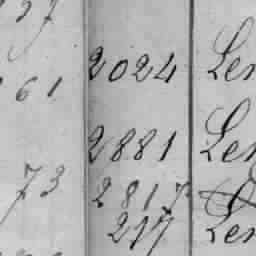 61 2024 Len
2881 Len
73 2817
217 Len